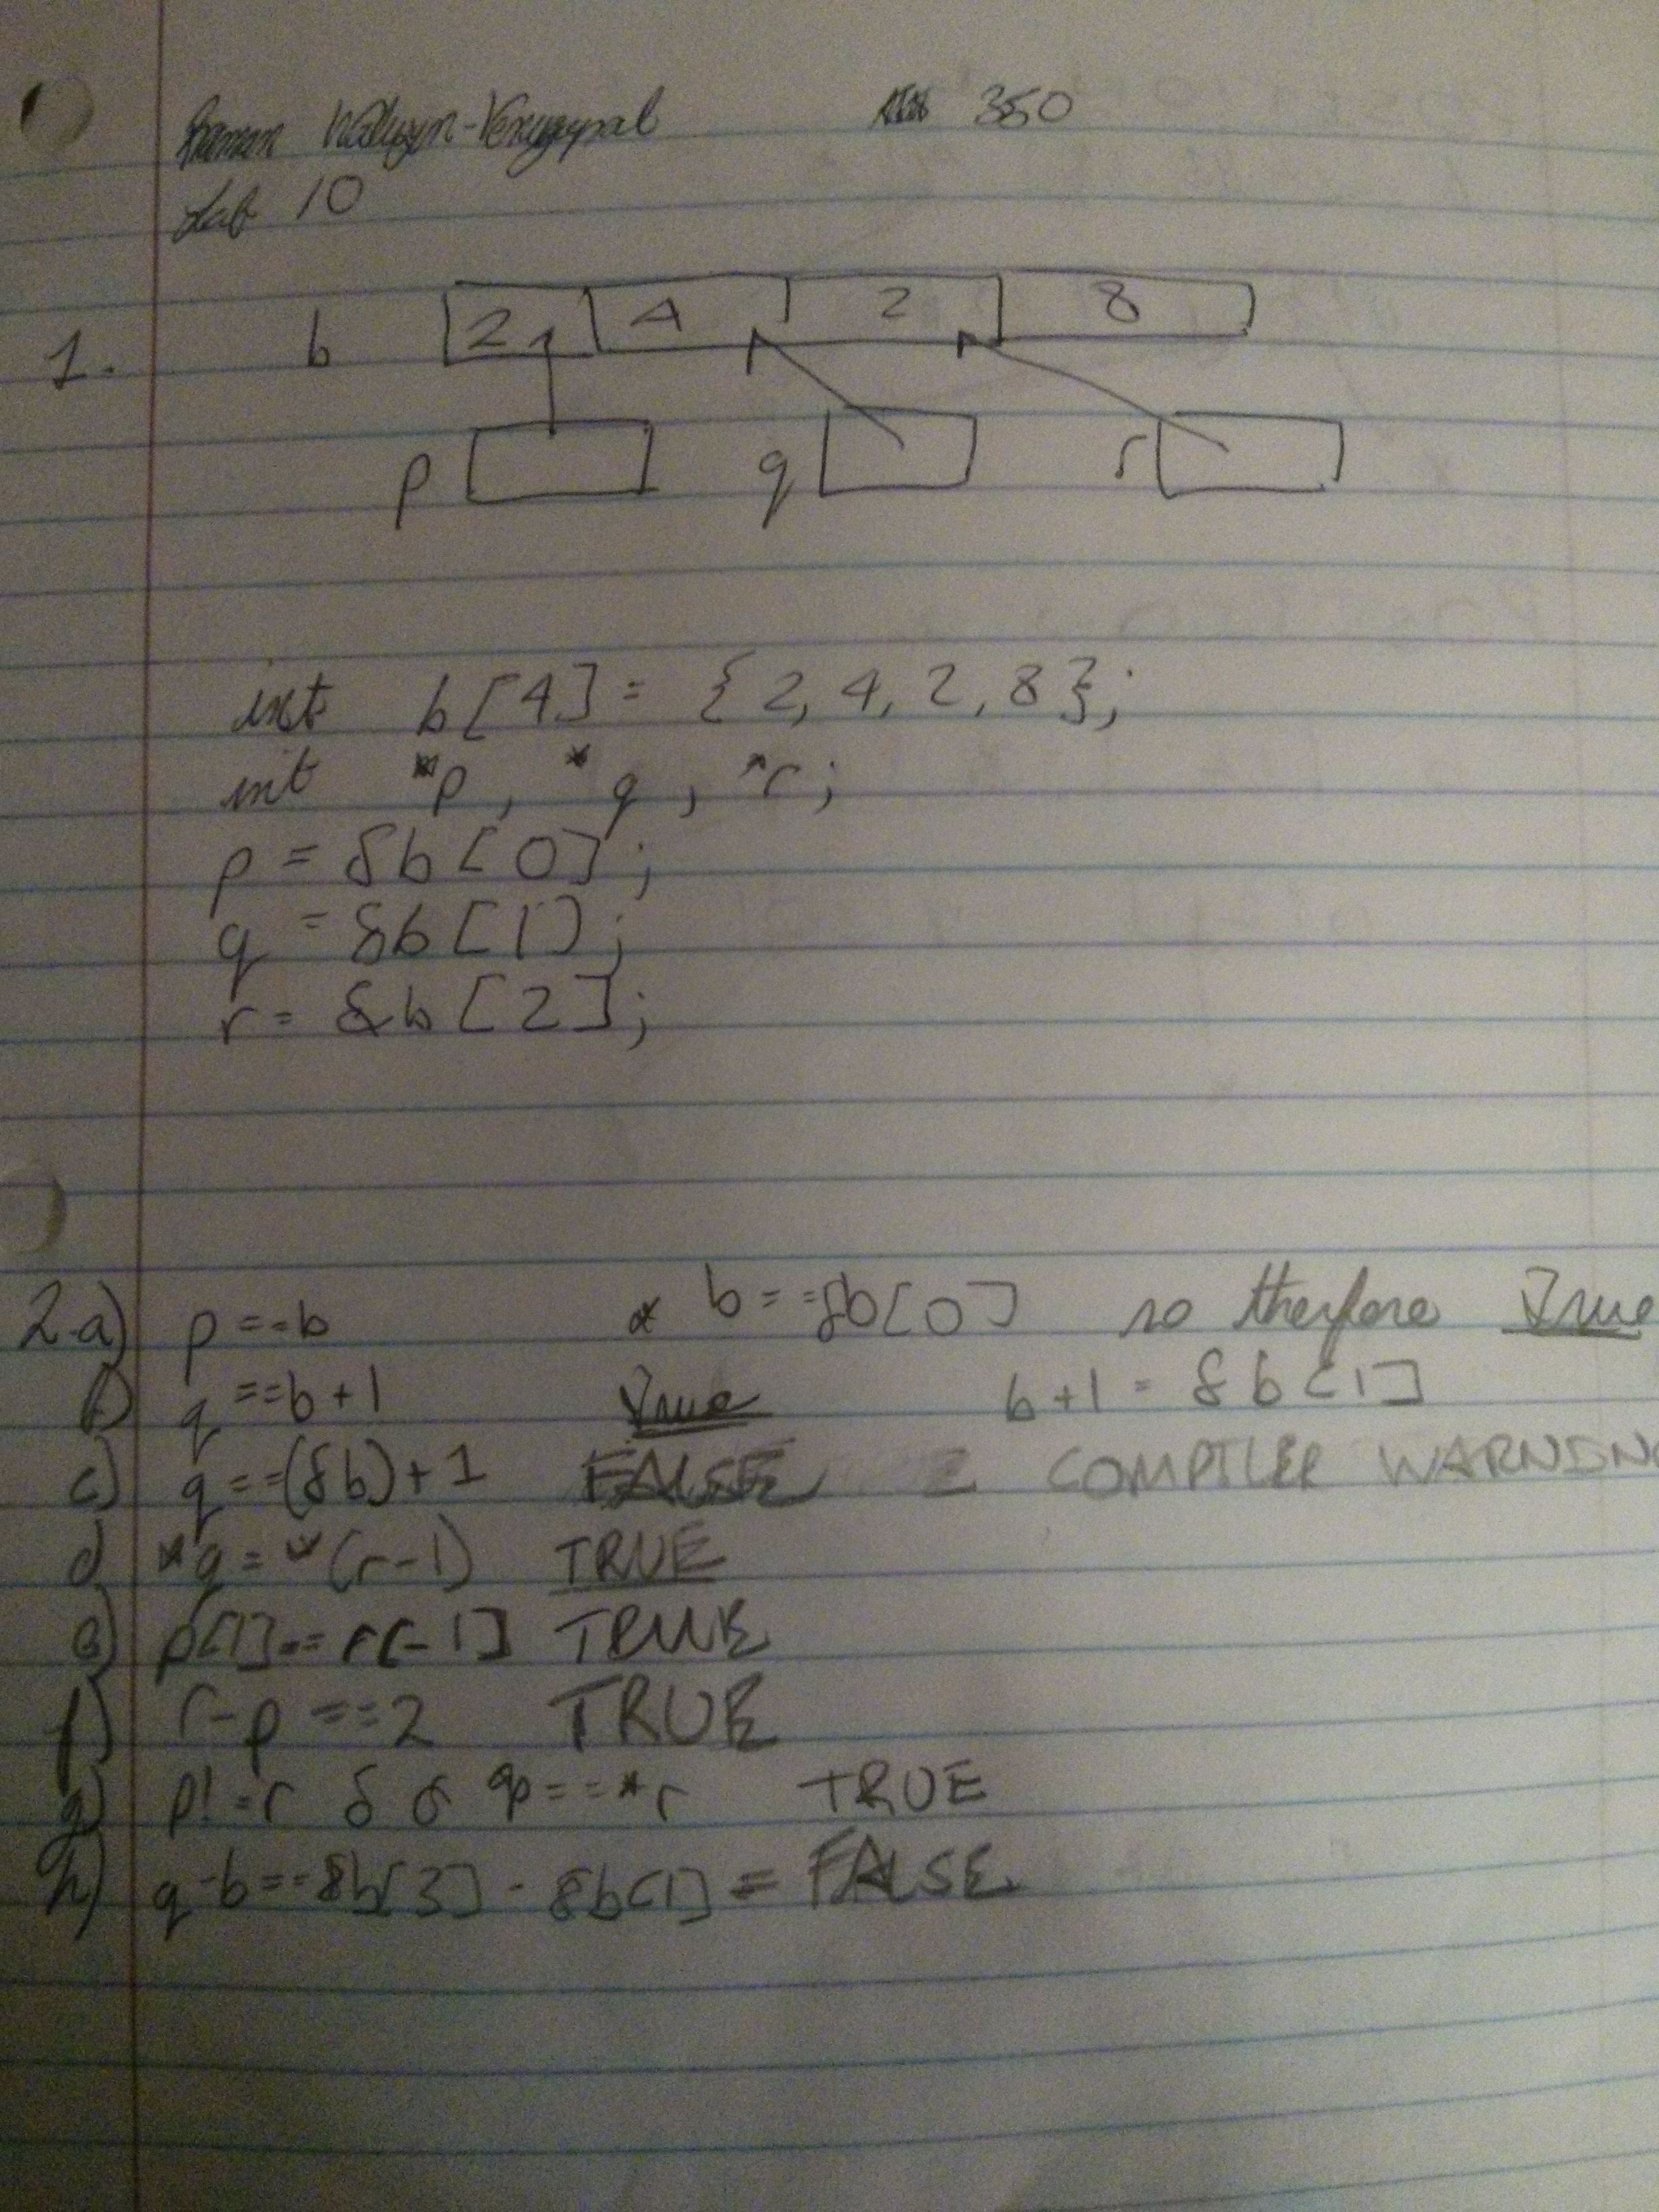 350
Lab 10
1. b 2 4 2 8
p q r
int b[4] = {2, 4, 2, 8};
int *p, *q, *r;
p = &b[0];
q = &b[1];
r = &b[2];
2.a) p==b * b==&b[0] so therefore True
b) q==b+1 True b+1 = &b[1]
c) q==(&b)+1 FALSE COMPILER WARNING
d) *q = *(r-1) TRUE
e) p[1]==r[-1] TRUE
f) r-p==2 TRUE
g) p!=r && *p==*r TRUE
h) q-b==&b[3] - &b[1] = FALSE